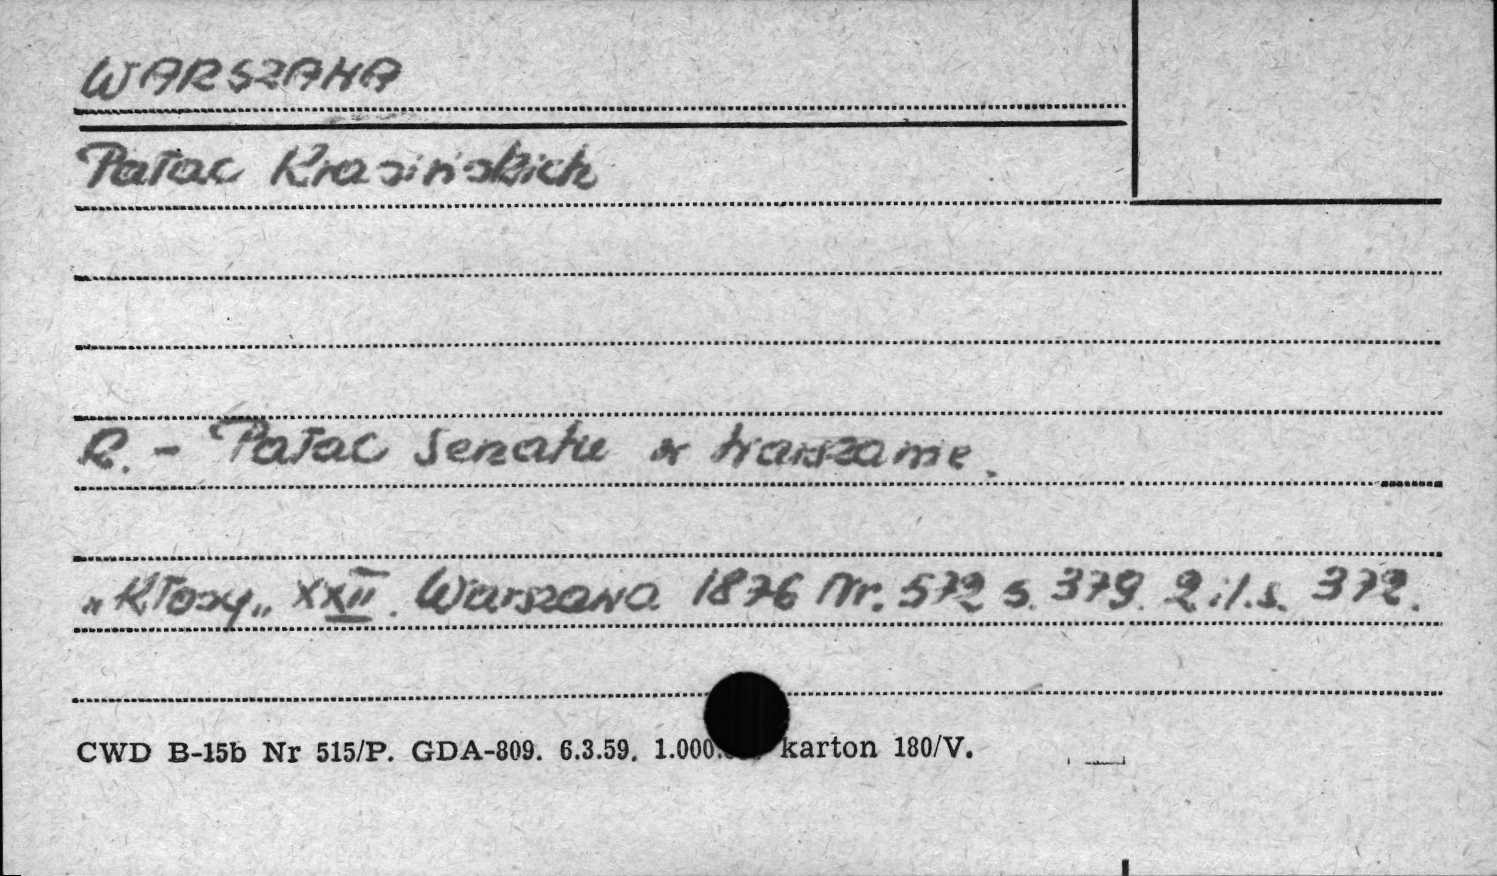 WARSZAWA
Pałac Krasińskich
R. - Pałac Senatu w Warszawie.
„Kłosy„ XXII. Warszawa 1876 Nr. 572 s. 379. 2 il. s. 372.
CWD B-15b Nr 515/P. GDA-809. 6.3.59. 1.000. karton 180/V.